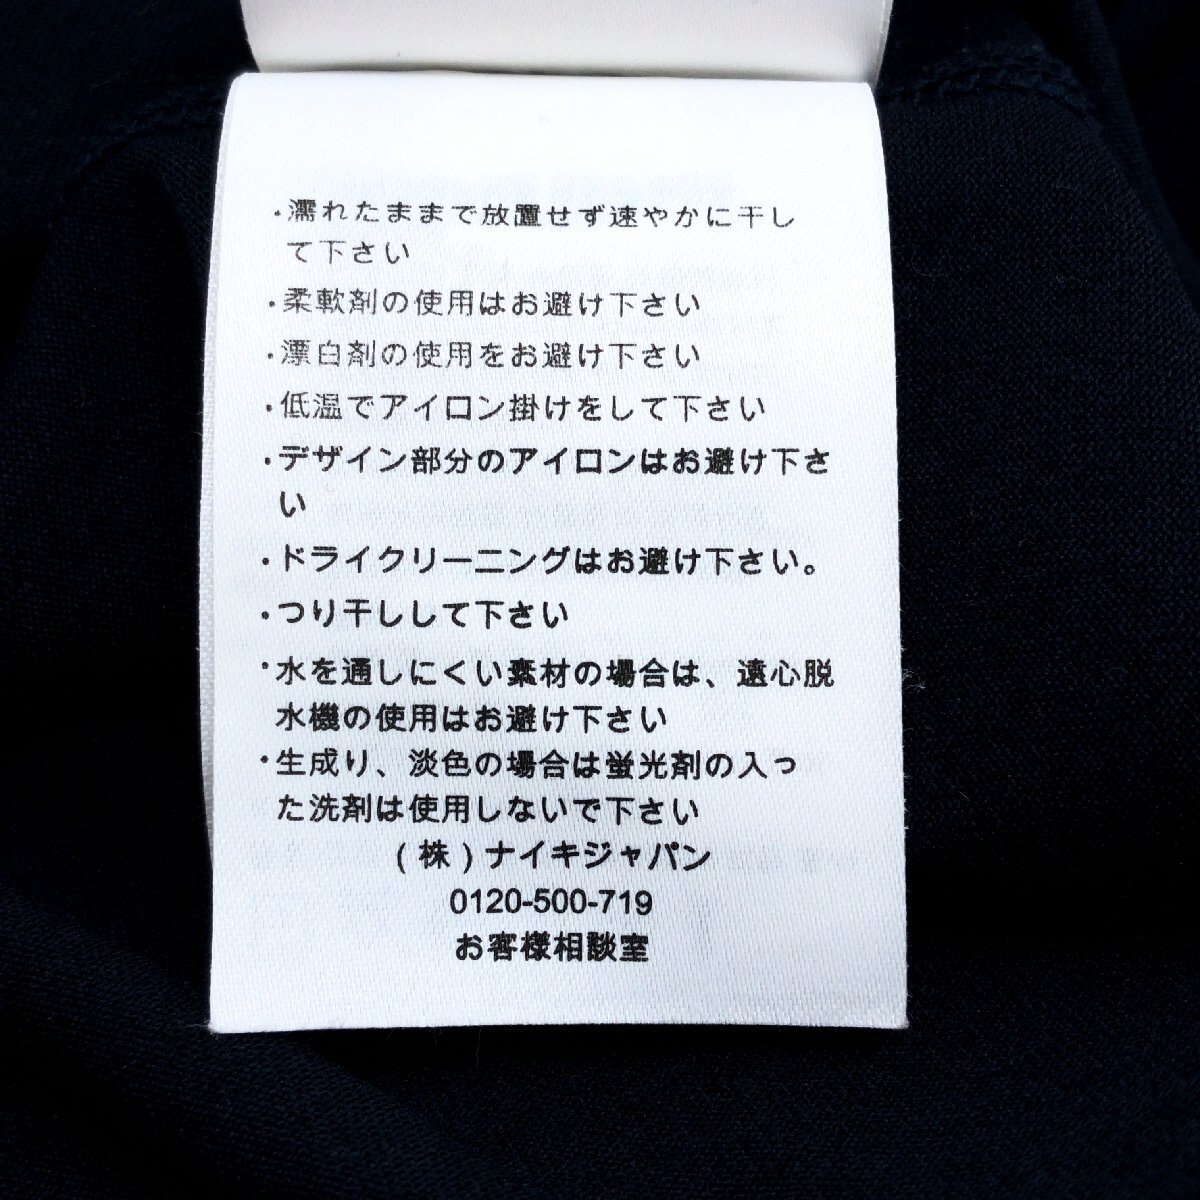 ・濡れたままで放置せず速やかに干し
て下さい
・柔軟剤の使用はお避け下さい
・漂白剤の使用をお避け下さい
・低温でアイロン掛けをして下さい
・デザイン部分のアイロンはお避け下さ
い
・ドライクリーニングはお避け下さい。
・つり干しして下さい
・水を通しにくい素材の場合は、遠心脱
水機の使用はお避け下さい
・生成り、淡色の場合は蛍光剤の入っ
た洗剤は使用しないで下さい
(株)ナイキジャパン
0120-500-719
お客様相談室